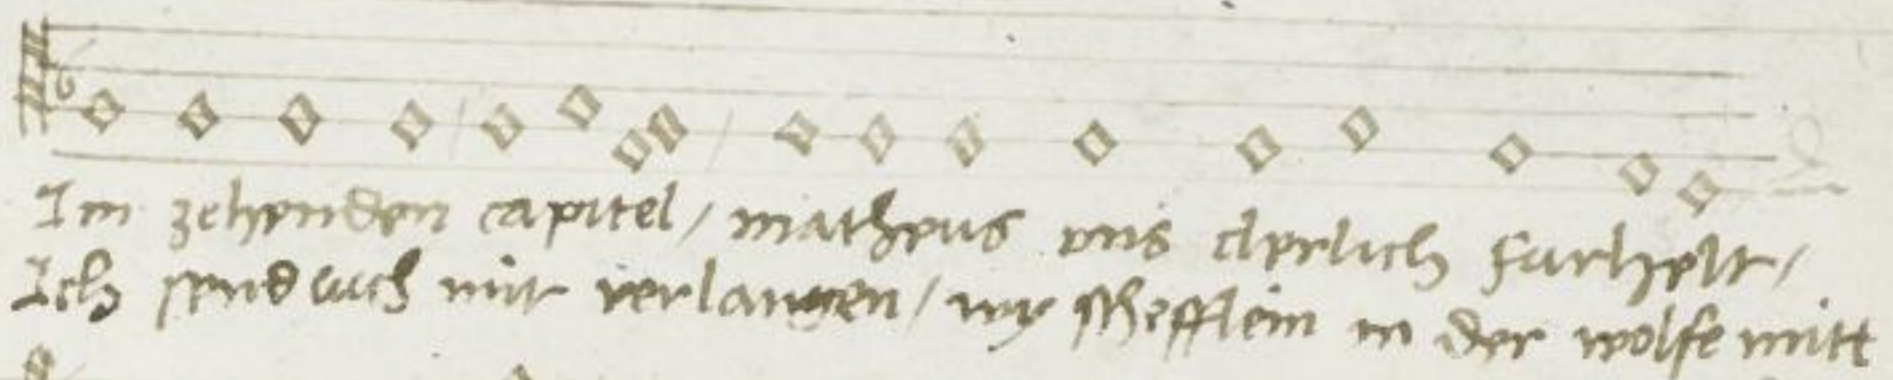 Im zehenden capitel / matheus vns clerlich furhelt /
Ich send euch mit verlangen / wy schefflein in der wolfe mitt